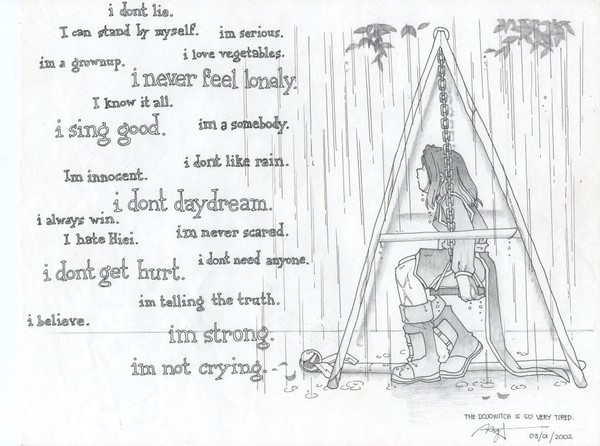 i dont lie.
I can stand by myself.
im serious.
i love vegetables.
im a grownup.
i never feel lonely.
I know it all.
i sing good.
im a somebody.
i dont like rain.
Im innocent.
i dont daydream.
i always win.
im never scared.
I hate Hiei.
i dont need anyone.
i dont get hurt.
im telling the truth.
i believe.
im strong.
im not crying.
THE DOJOWITCH IS SO VERY TIRED.
03/01/2002